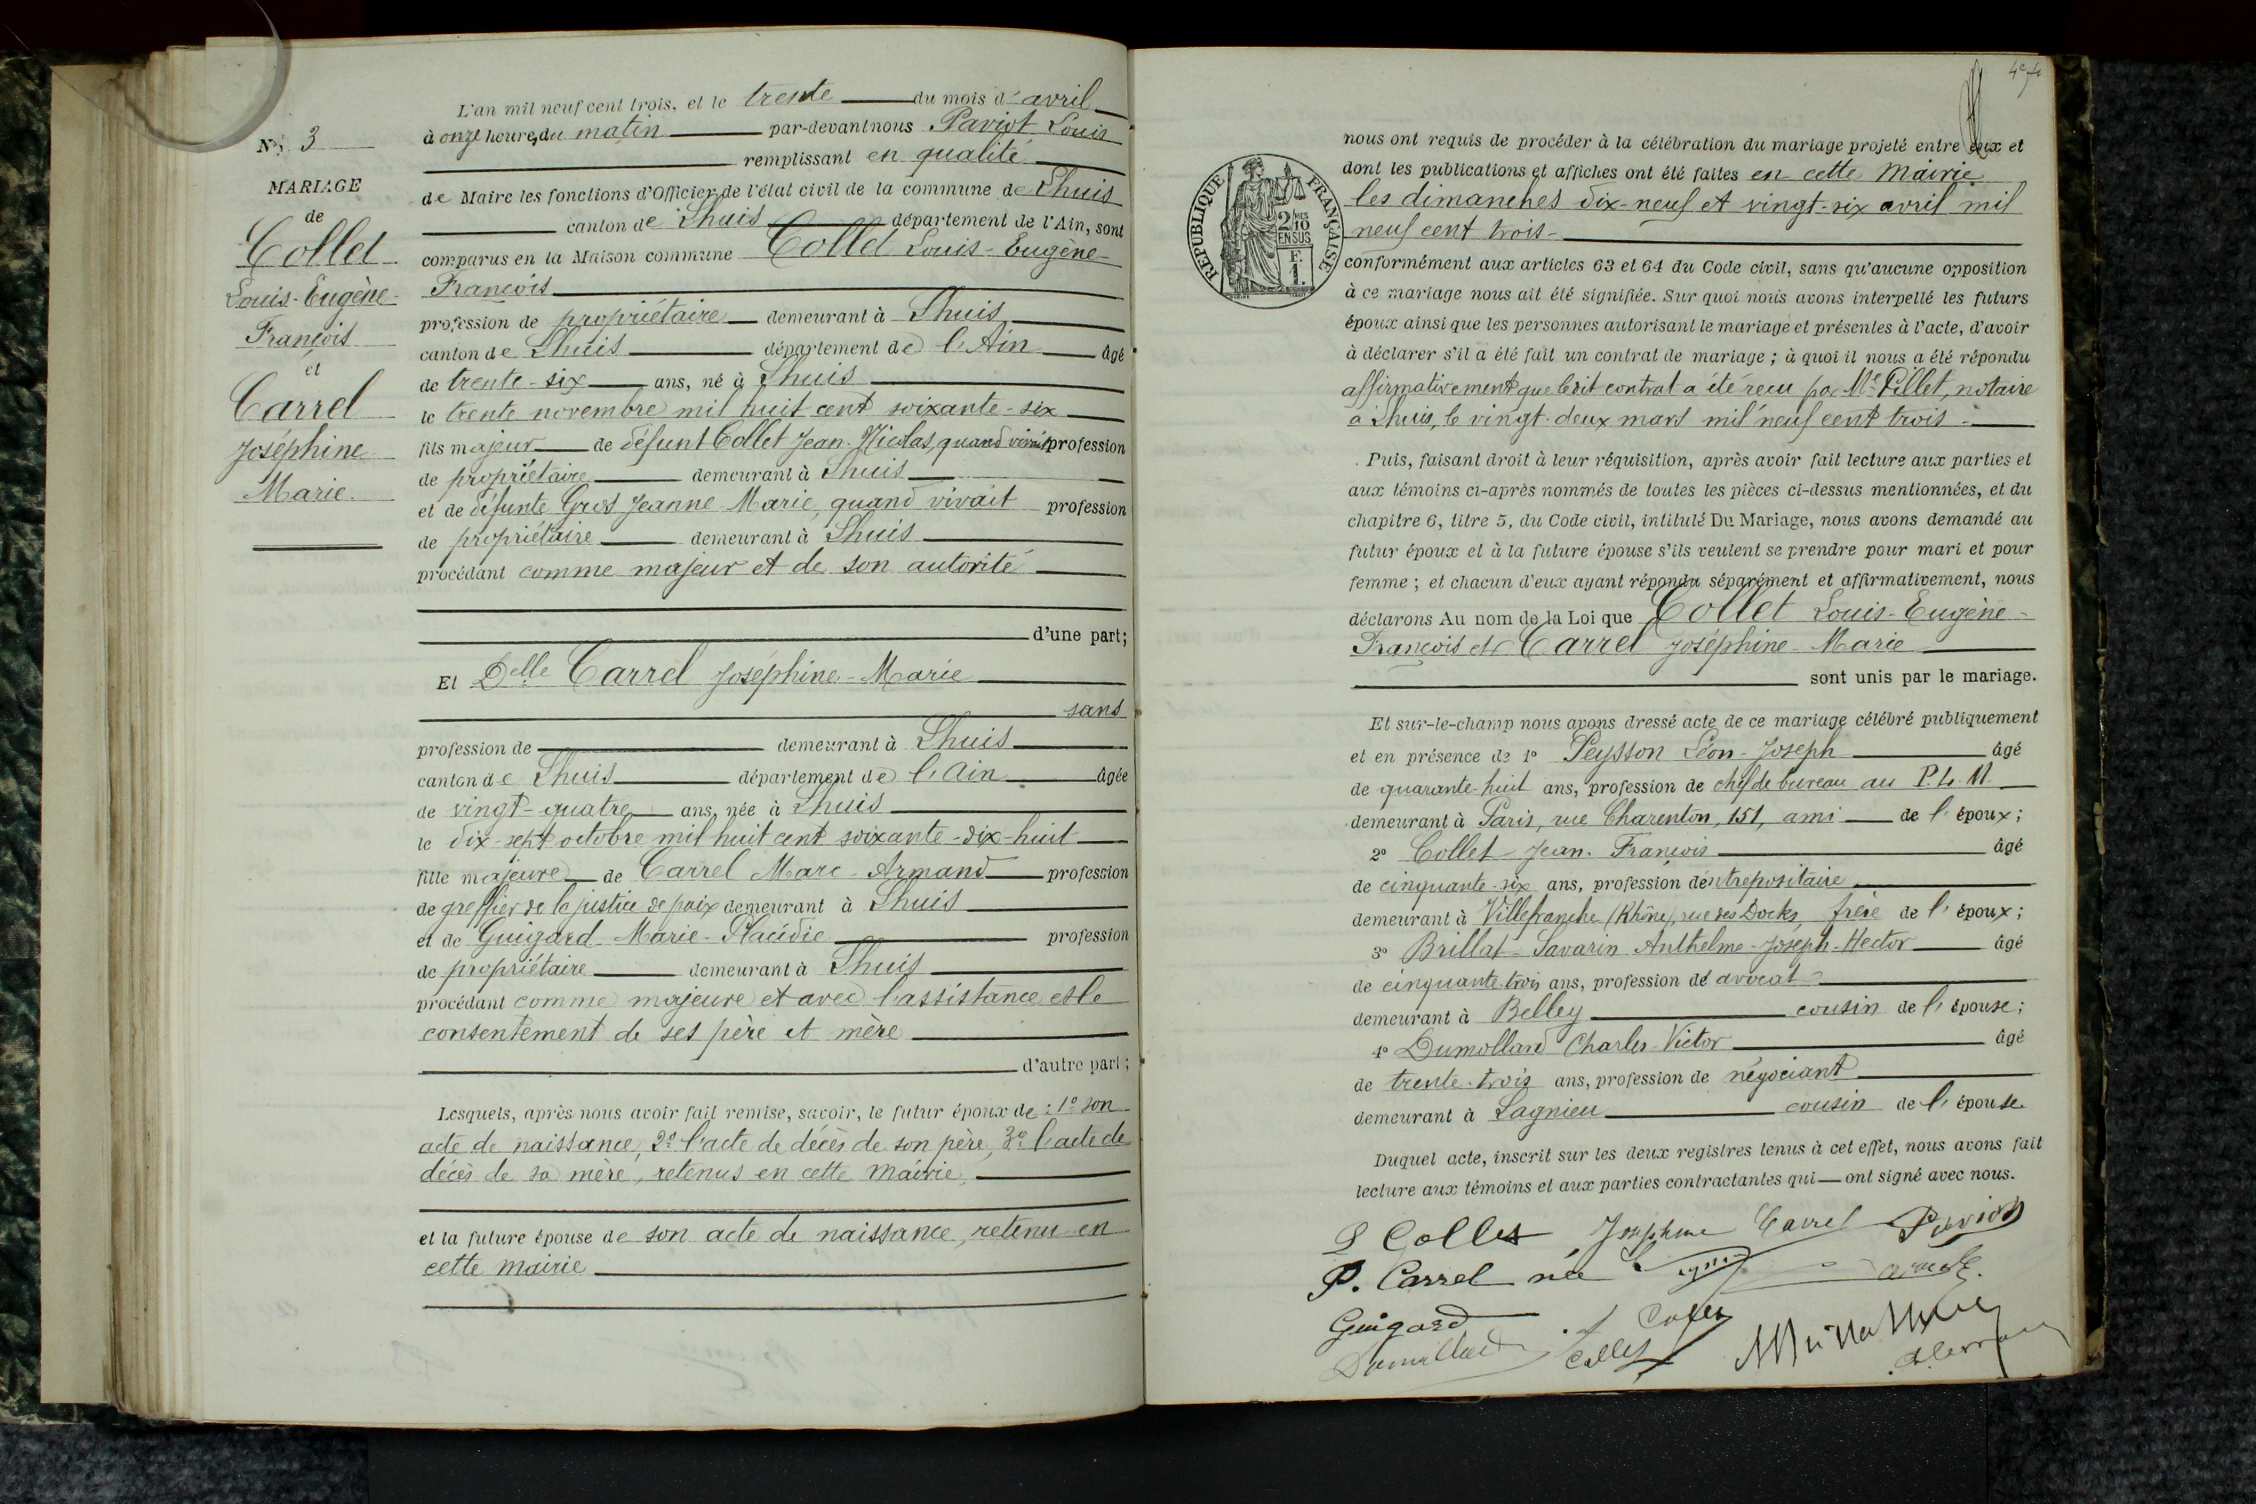 N° 3
MARIAGE
de
Collet
Louis-Eugène-
François
et
Carrel
Joséphine
Marie.
L'an mil neuf cent trois, et le trente du mois d'avril
à onze heures du matin par-devant nous Paviot Louis
remplissant en qualité
de Maire les fonctions d'Officier de l'état civil de la commune de Lhuis
canton de Lhuis département de l'Ain, sont
comparus en la Maison commune Collet Louis-Eugène-
François
profession de propriétaire demeurant à Lhuis
canton de Lhuis département de l'Ain âgé
de trente-six ans, né à Lhuis
le trente novembre mil huit cent soixante-six
fils majeur de défunt Collet Jean-Nicolas, quand vivait profession
de propriétaire demeurant à Lhuis
et de défunte Gros Jeanne Marie, quand vivait profession
de propriétaire demeurant à Lhuis
procédant comme majeur et de son autorité
d'une part;
Et Delle Carrel Joséphine-Marie
sans
profession de demeurant à Lhuis
canton de Lhuis département de l'Ain âgée
de vingt-quatre ans, née à Lhuis
le dix-sept octobre mil huit cent soixante-dix-huit
fille majeure de Carrel Marc-Armand profession
de greffier de la justice de paix demeurant à Lhuis
et de Guigard Marie-Placidie profession
de propriétaire demeurant à Lhuis
procédant comme majeure et avec l'assistance et le
consentement de ses père et mère
d'autre part;
Lesquels, après nous avoir fait remise, savoir, le futur époux de : 1° son
acte de naissance, 2° l'acte de décès de son père, 3° l'acte de
décès de sa mère, retenus en cette mairie,
et la future épouse de son acte de naissance, retenu en
cette mairie
RÉPUBLIQUE FRANÇAISE
2/10 EN SUS
F. 1.
nous ont requis de procéder à la célébration du mariage projeté entre eux et
dont les publications et affiches ont été faites en cette Mairie
les dimanches dix-neuf et vingt-six avril mil
neuf cent trois-
conformément aux articles 63 et 64 du Code civil, sans qu'aucune opposition
à ce mariage nous ait été signifiée. Sur quoi nous avons interpellé les futurs
époux ainsi que les personnes autorisant le mariage et présentes à l'acte, d'avoir
à déclarer s'il a été fait un contrat de mariage ; à quoi il nous a été répondu
affirmativement que ledit contrat a été reçu par Me Pillet, notaire
à Lhuis, le vingt-deux mars mil neuf cent trois -
Puis, faisant droit à leur réquisition, après avoir fait lecture aux parties et
aux témoins ci-après nommés de toutes les pièces ci-dessus mentionnées, et du
chapitre 6, titre 5, du Code civil, intitulé Du Mariage, nous avons demandé au
futur époux et à la future épouse s'ils veulent se prendre pour mari et pour
femme ; et chacun d'eux ayant répondu séparément et affirmativement, nous
déclarons Au nom de la Loi que Collet Louis-Eugène-
François et Carrel Joséphine-Marie
sont unis par le mariage.
Et sur-le-champ nous avons dressé acte de ce mariage célébré publiquement
et en présence de 1° Peysson Léon-Joseph âgé
de quarante-huit ans, profession de chef de bureau au P. L. M.
demeurant à Paris, rue Charenton, 151, ami de l'époux ;
2° Collet Jean-François âgé
de cinquante-six ans, profession d'entrepositaire
demeurant à Villefranche (Rhône), rue des Docks frère de l'époux ;
3° Brillat-Savarin Anthelme-Joseph-Hector âgé
de cinquante-trois ans, profession de avocat
demeurant à Belley cousin de l'épouse ;
4° Dumollard Charles-Victor âgé
de trente-trois ans, profession de négociant
demeurant à Lagnieu cousin de l'épouse
Duquel acte, inscrit sur les deux registres tenus à cet effet, nous avons fait
lecture aux témoins et aux parties contractantes qui ont signé avec nous.
L Collet Joséphine Carrel Paviot
P. Carrel née
Guigard Collet
Dumollard Collet